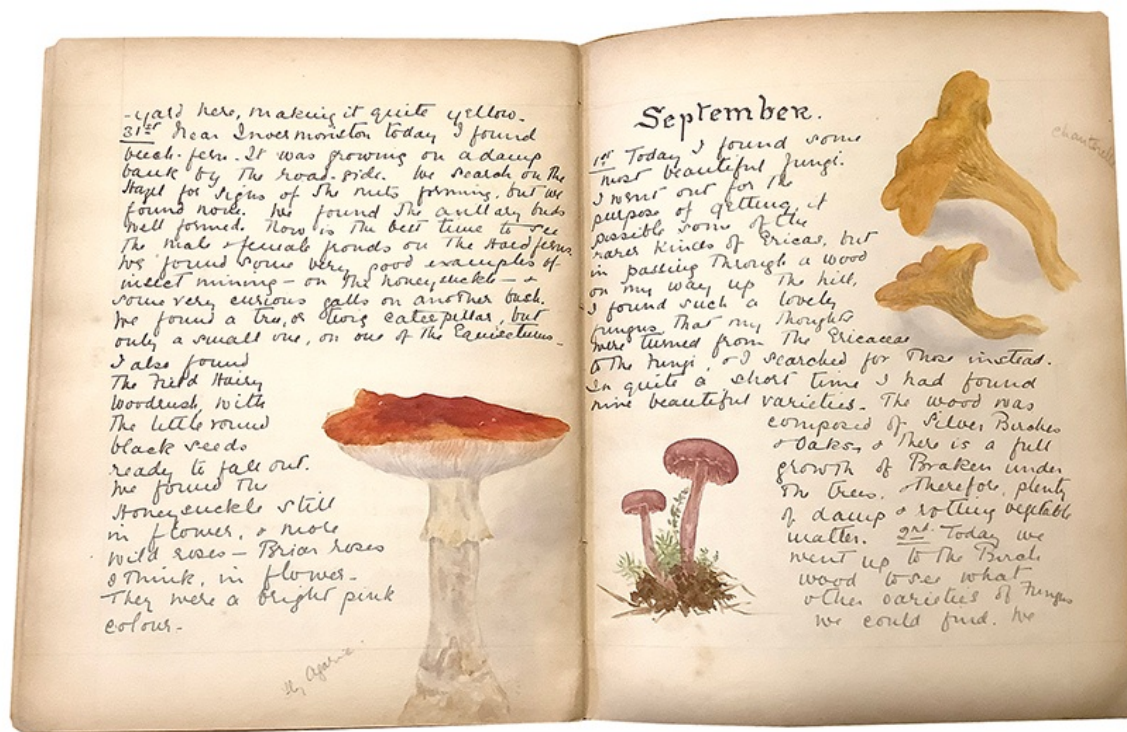 -yard here, making it quite yellow.
31st Near Invermoriston today I found
beech-fern. It was growing on a damp
bank by the road-side. We search on the
Hazel for signs of the nuts forming, but we
found none. We found the axillary buds
well formed. Now is the best time to see
the male & female fronds on the Hard ferns.
We found some very good examples of
insect mining - on the honeysuckle - &
some very curious galls on another bush.
We found a tree, or twig caterpillar, but
only a small one, on one of the Equisetums_
I also found
The Field Hairy
Woodrush, with
the little round
black seeds
ready to fall out.
We found the
Honeysuckle still
in flower, & more
wild roses - Briar roses
I think, in flower -
They were a bright pink
colour -
Fly Agaric
September.
1st Today I found some
most beautiful fungi.
I went out for the
purpose of getting, if
possible some of the
rarer kinds of Ericas, but
in passing through a wood
on my way up the hill,
I found such a lovely
fungus that my thoughts
were turned from the Ericaceae
to the Fungi, & I searched for those instead.
In quite a short time I had found
nine beautiful varieties. The wood was
composed of Silver Birches
& Oaks, & there is a full
growth of Braken under
the trees, & therefore, plenty
of damp & rotting vegetable
matter. 2nd Today we
went up to the Birch
wood to see what
other varieties of Fungus
we could find. We
Chantrelle